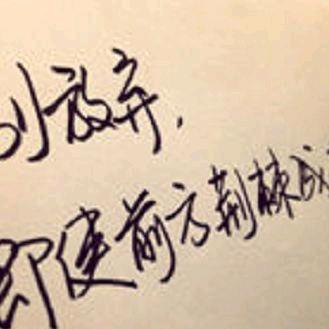 别放弃，
即使前方荆棘成